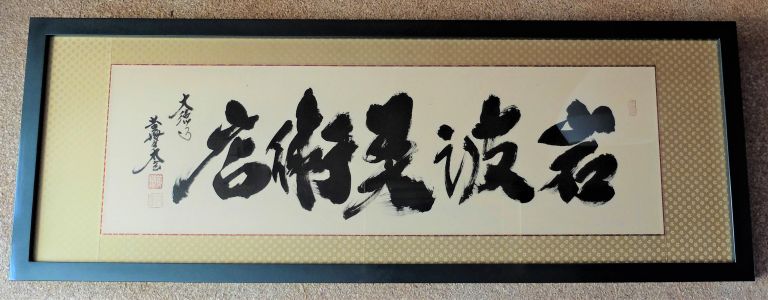 岩波美術店
大徳寺